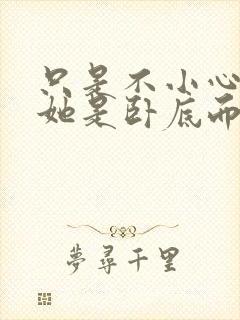 只是不小心
她是卧底而
夢尋千里